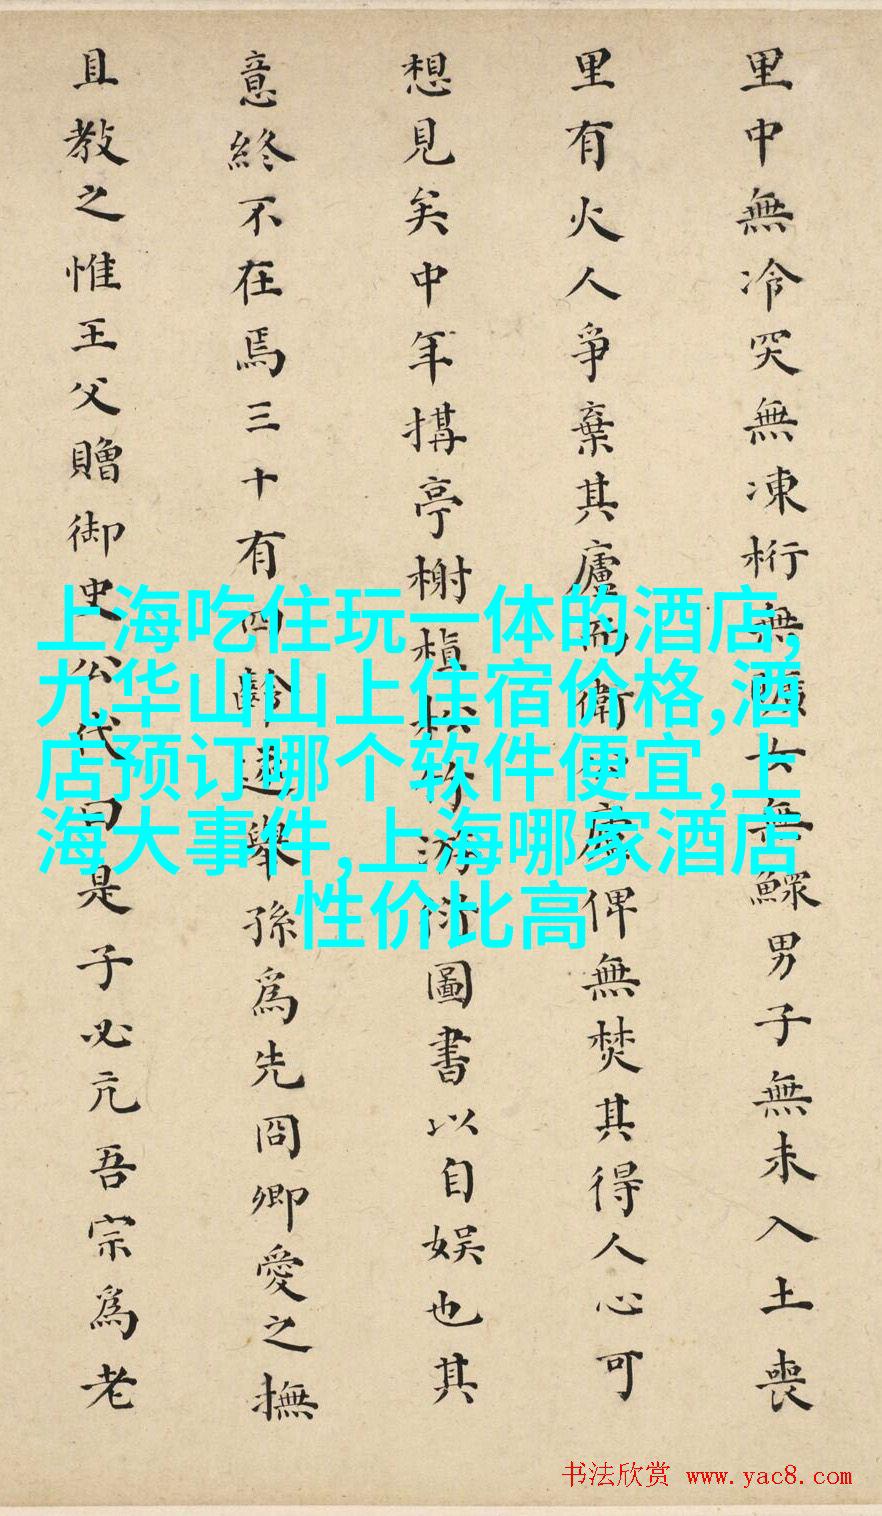 里中無冷突無凍桁無女無鰥男子無未入土喪
里有火人爭棄其廬而衛廬俾無焚其得人心可
想見矣中年搆亭榭植松竹游衍圖書以自娛也其
意終不在焉三十有四齡遽舉孫爲先冏卿愛之撫
且教之惟王父贈御史公代曰是子必亢吾宗爲老
上海吃住玩一体的酒店,
九华山山上住宿价格,酒
店预订哪个软件便宜,上
海大事件,上海哪家酒店
性价比高
书法欣赏 www.yac8.com